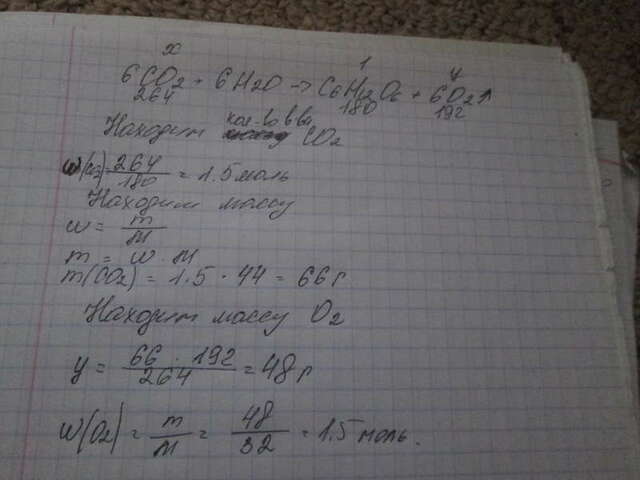 x 1 y
6CO2 + 6H2O → C6H12O6 + 6O2↑
264 180 192
Находим кол-во в-ва CO2
W(CO2) = 264/180 = 1.5 моль
Находим массу
W = m/M
m = W · M
m(CO2) = 1.5 · 44 = 66 г
Находим массу O2
y = 66 · 192/264 = 48 г
W(O2) = m/M = 48/32 = 1.5 моль.